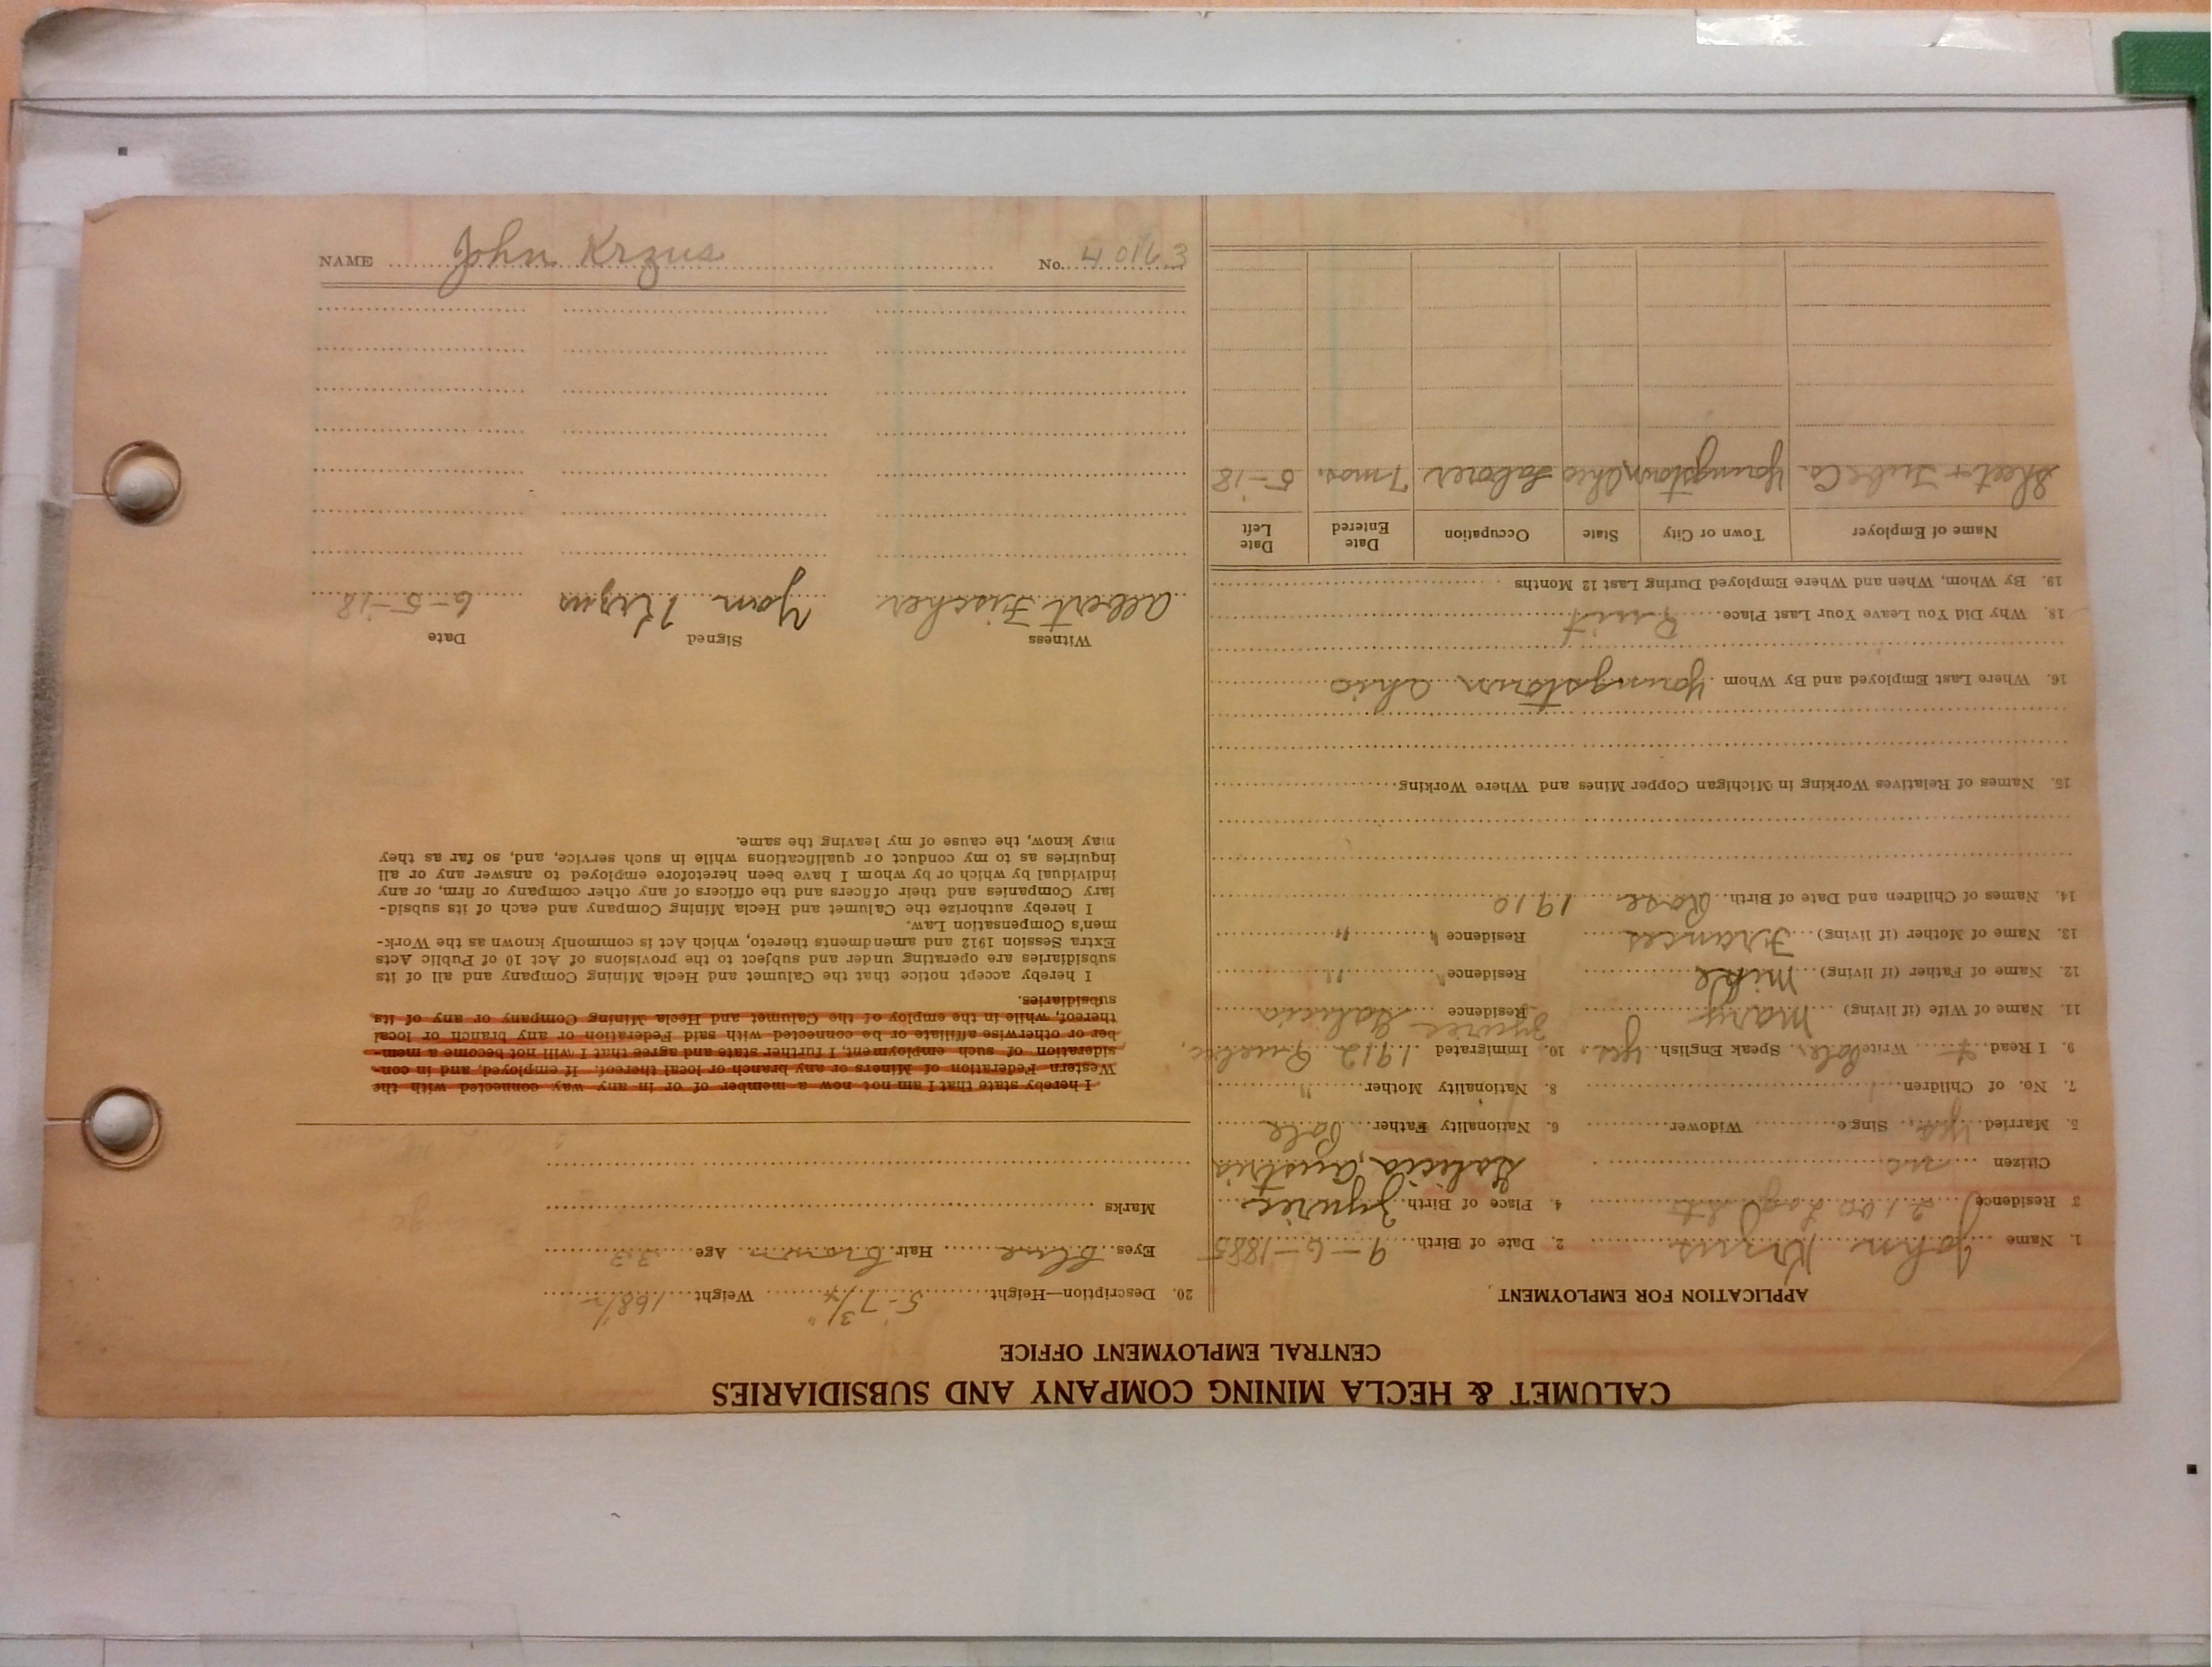 CALUMET & HECLA MINING COMPANY AND SUBSIDIARIES
CENTRAL EMPLOYMENT OFFICE
APPLICATION FOR EMPLOYMENT
1. Name John Krzus 2. Date of Birth 9-6-1885
3 Residence 2100 Log St. 4. Place of Birth
Citizen no Galicia, Austria
5. Married yes Single Widower 6. Nationality Father Pole
7. No. of Children 1 8. Nationality Mother "
9. I Read + Write Pole Speak English yes 10. Immigrated 1912
11. Name of Wife (if living) Mary Residence Galicia
12. Name of Father (if living) Mike Residence " "
13. Name of Mother (if living) Frances Residence " "
14. Names of Children and Date of Birth Rose 1910
15. Names of Relatives Working in Michigan Copper Mines and Where Working
16. Where Last Employed and By Whom Youngstown Ohio
18. Why Did You Leave Your Last Place Quit
19. By Whom, When and Where Employed During Last 12 Months
Name of Employer Town or City State Occupation Date Entered Date Left
Sheet + Tube Co. Youngstown Ohio Laborer 7 mos. 5-'18
20. Description—Height 5-7 3/4" Weight 168 1/2
Eyes blue Hair brown Age 32
Marks
I hereby state that I am not now a member of or in any way connected with the
Western Federation of Miners or any branch or local thereof. If employed, and in con-
sideration of such employment, I further state and agree that I will not become a mem-
ber or otherwise affiliate or be connected with said Federation or any branch or local
thereof, while in the employ of the Calumet and Hecla Mining Company or any of its
subsidiaries.
I hereby accept notice that the Calumet and Hecla Mining Company and all of its
subsidiaries are operating under and subject to the provisions of Act 10 of Public Acts
Extra Session 1912 and amendments thereto, which Act is commonly known as the Work-
men's Compensation Law.
I hereby authorize the Calumet and Hecla Mining Company and each of its subsid-
iary Companies and their officers and the officers of any other company or firm, or any
individual by which or by whom I have been heretofore employed to answer any or all
inquiries as to my conduct or qualifications while in such service, and, so far as they
may know, the cause of my leaving the same.
Witness Signed Date
Albert Fischer Yan Krzus 6-5-'18
NAME John Krzus No. 40163